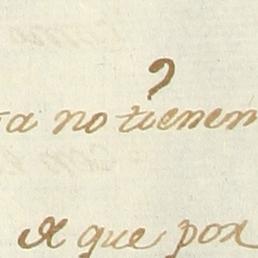 ?
ta no tienen
que por